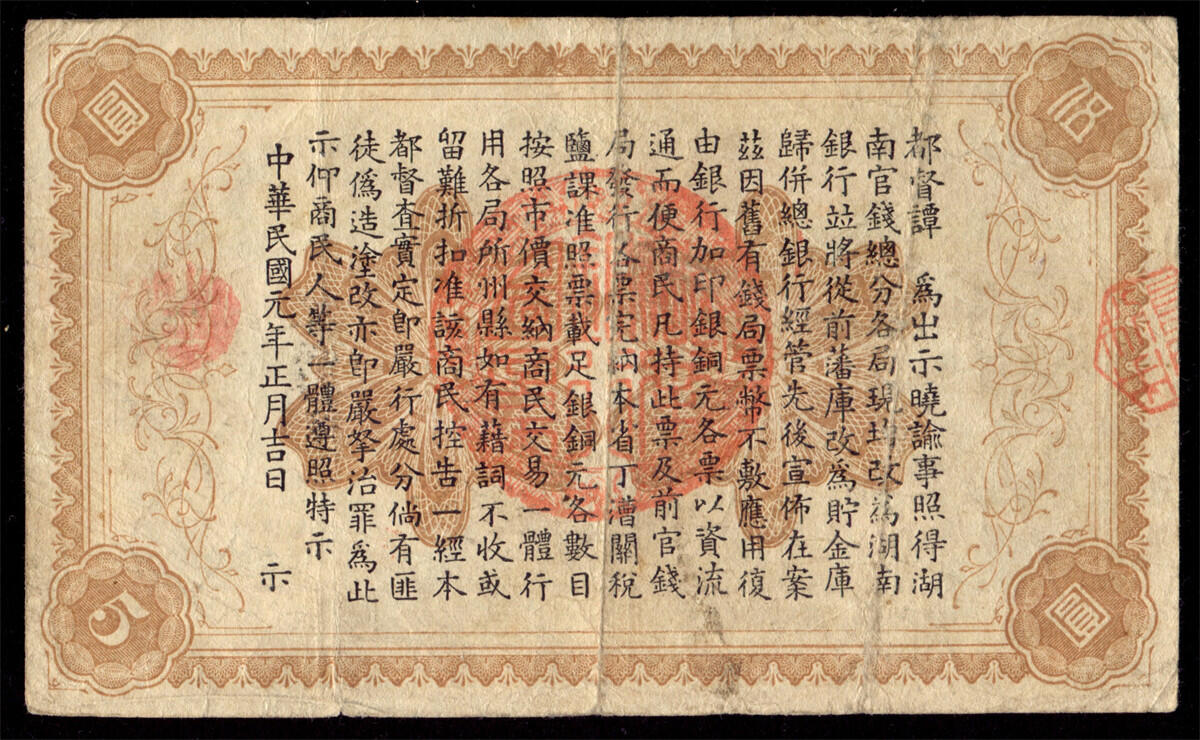 都督譚　爲出示曉諭事照得湖
南官錢總分各局現均改爲湖南
銀行竝將從前藩庫改爲貯金庫
歸併總銀行經管先後宣佈在案
茲因舊有錢局票幣不敷應用復
由銀行加印銀銅元各票以資流
通而便商民凡持此票及前官錢
局發行各票完納本省丁漕關稅
鹽課准照票載足銀銅元各數目
按照市價交納商民交易一體行
用各局所州縣如有藉詞不收或
留難折扣准該商民控告一經本
都督查實定卽嚴行處分倘有匪
徒僞造塗改亦卽嚴拏治罪爲此
示仰商民人等一體遵照特示
中華民國元年正月吉日　示
圓
伍
5
圓